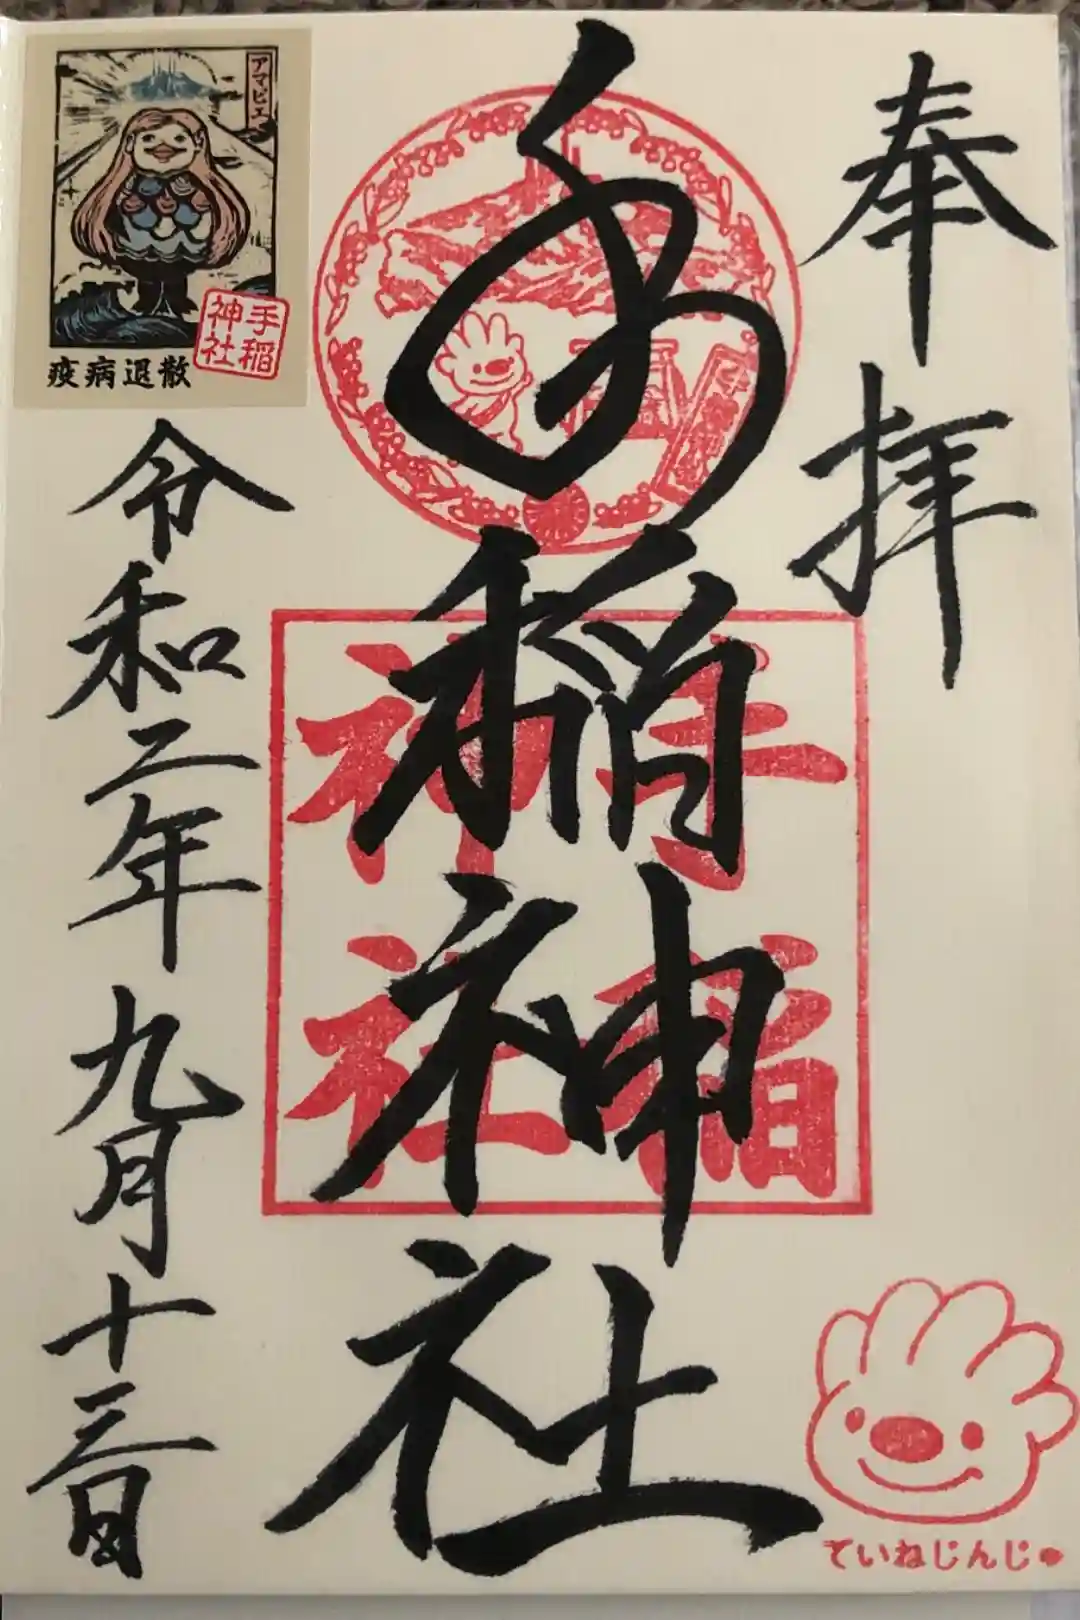 奉拝
手稲神社
手稲
神社
令和二年九月十三日
アマビエ
手稲
神社
疫病退散
ていねじんじ